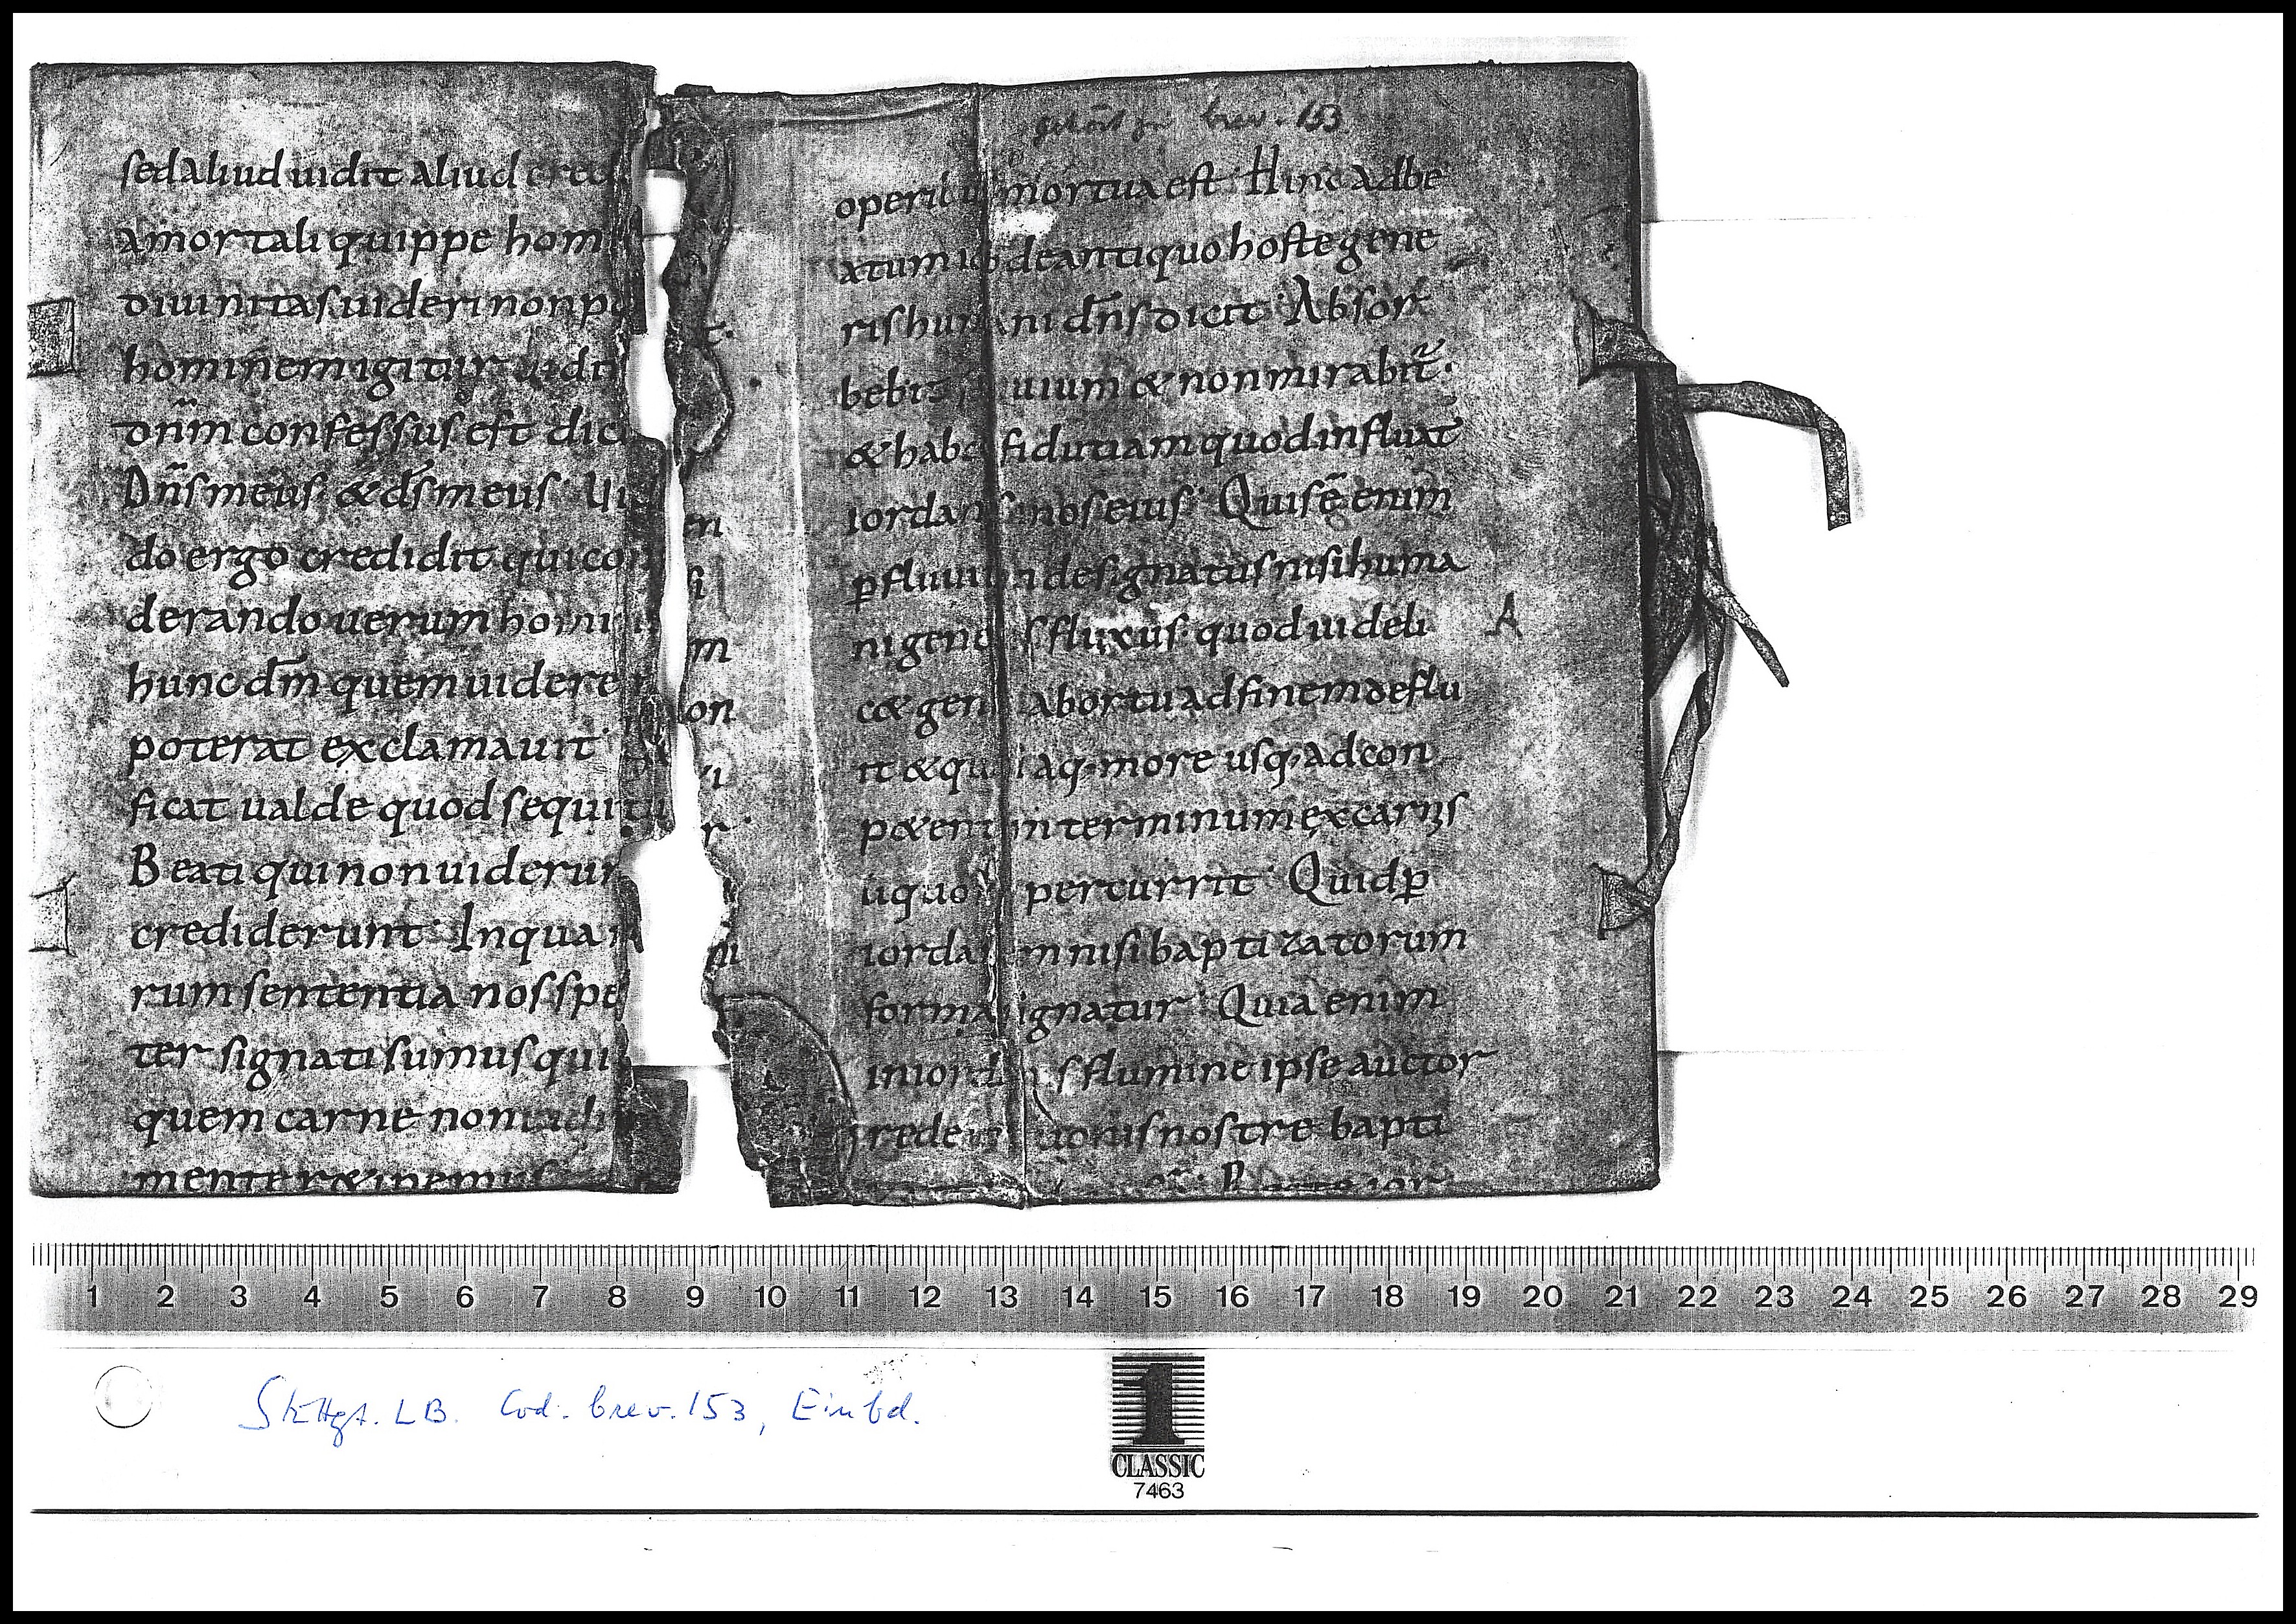 sed aliud uidit aliud
a mortali quippe hom
diuinitas uideri non po
hominem igitur uidit
dn̄m confessus est dic
Dn̄s meus & ds̄ meus· Ui
do ergo credidit qui co
derando uerum homi
hunc dm̄ quem uidere
poterat exclamauit·
ficat ualde quod sequitu
Beati qui non uiderun
crediderunt· In qua
rum sententia nos spe
ter signati sumus qui
quem carne non
mente retinemus
t·
en
si
m
on
r·
gehört zu brev. 153
operibus mortua est· Hinc ad be
atum iob de antiquo hoste gene
ris humani dn̄s dicit· Absor
bebit uium & non mirabit᷑·
& habe fiduciam quod influat
iordanis nos eius· Quis ē enim
p̱ fluuium designatus nisi huma
ni gene s fluxus· quod uideli
c& gen ab ortu ad finem deflu
it & qu i aq· more usq· ad con
p&en in terminum ex carnis
liquo percurrit· Quid p̱
iorda m nisi baptizatorum
forma ignatur· Quia enim
in iord s flumine ipse auctor
rede ionis nostre bapti
A
1 2 3 4 5 6 7 8 9 10 11 12 13 14 15 16 17 18 19 20 21 22 23 24 25 26 27 28 29
Stuttgt. LB. Cod. brev. 153, Einbd.
1
CLASSIC
7463